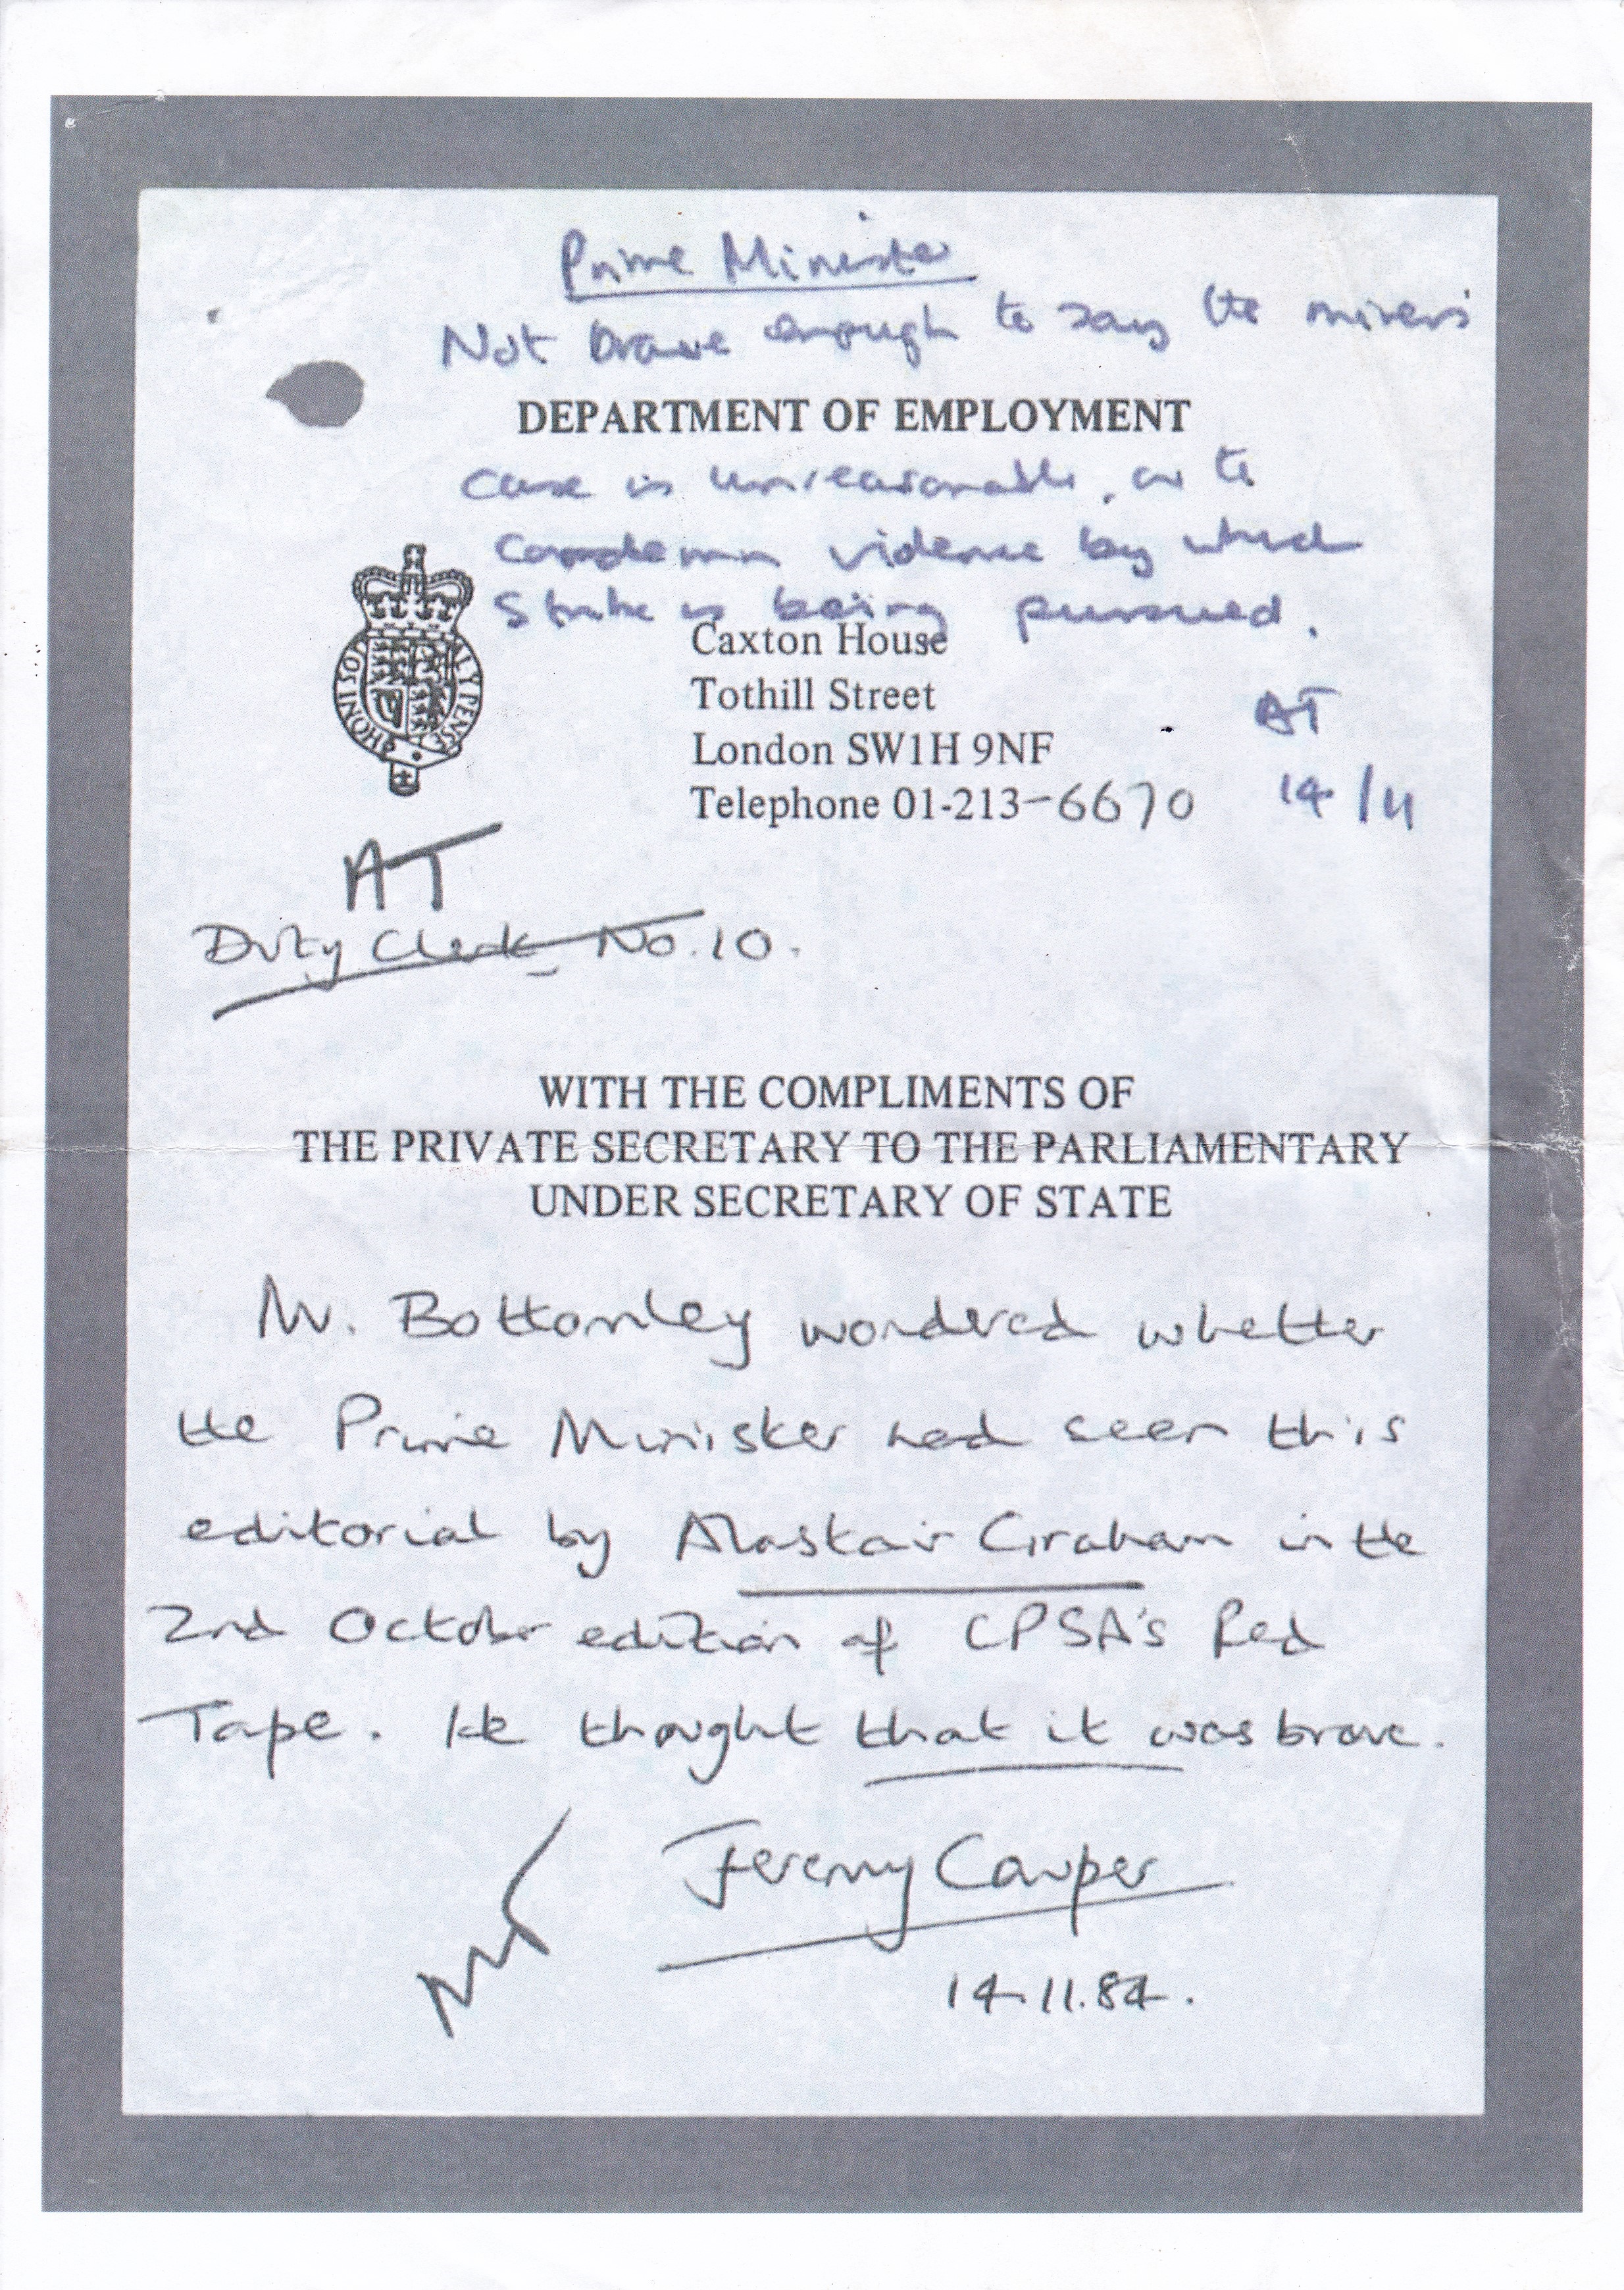 Prime Minister
Not brave enough to say the miners'
DEPARTMENT OF EMPLOYMENT
case is unreasonable, or to
condemn violence by which
strike is being pursued.
Caxton House
Tothill Street
London SW1H 9NF
Telephone 01-213-6670
AT
14/11
HONI SOI LY PENSE
AT
Duty Clerk, No. 10.
WITH THE COMPLIMENTS OF
THE PRIVATE SECRETARY TO THE PARLIAMENTARY
UNDER SECRETARY OF STATE
Mr. Bottomley wondered whether
the Prime Minister had seen this
editorial by Alastair Graham in the
2nd October edition of CPSA's Red
Tape. He thought that it was brave.
Jeremy Cowper
14.11.84.